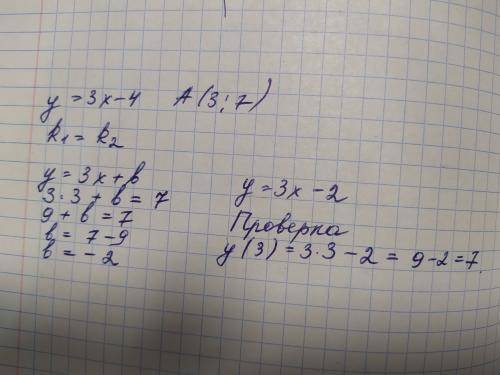 y = 3x - 4   A(3; 7)
k₁ = k₂
y = 3x + b
3·3 + b = 7
9 + b = 7
b = 7 - 9
b = - 2
y = 3x - 2
Проверка
y(3) = 3·3 - 2 = 9 - 2 = 7